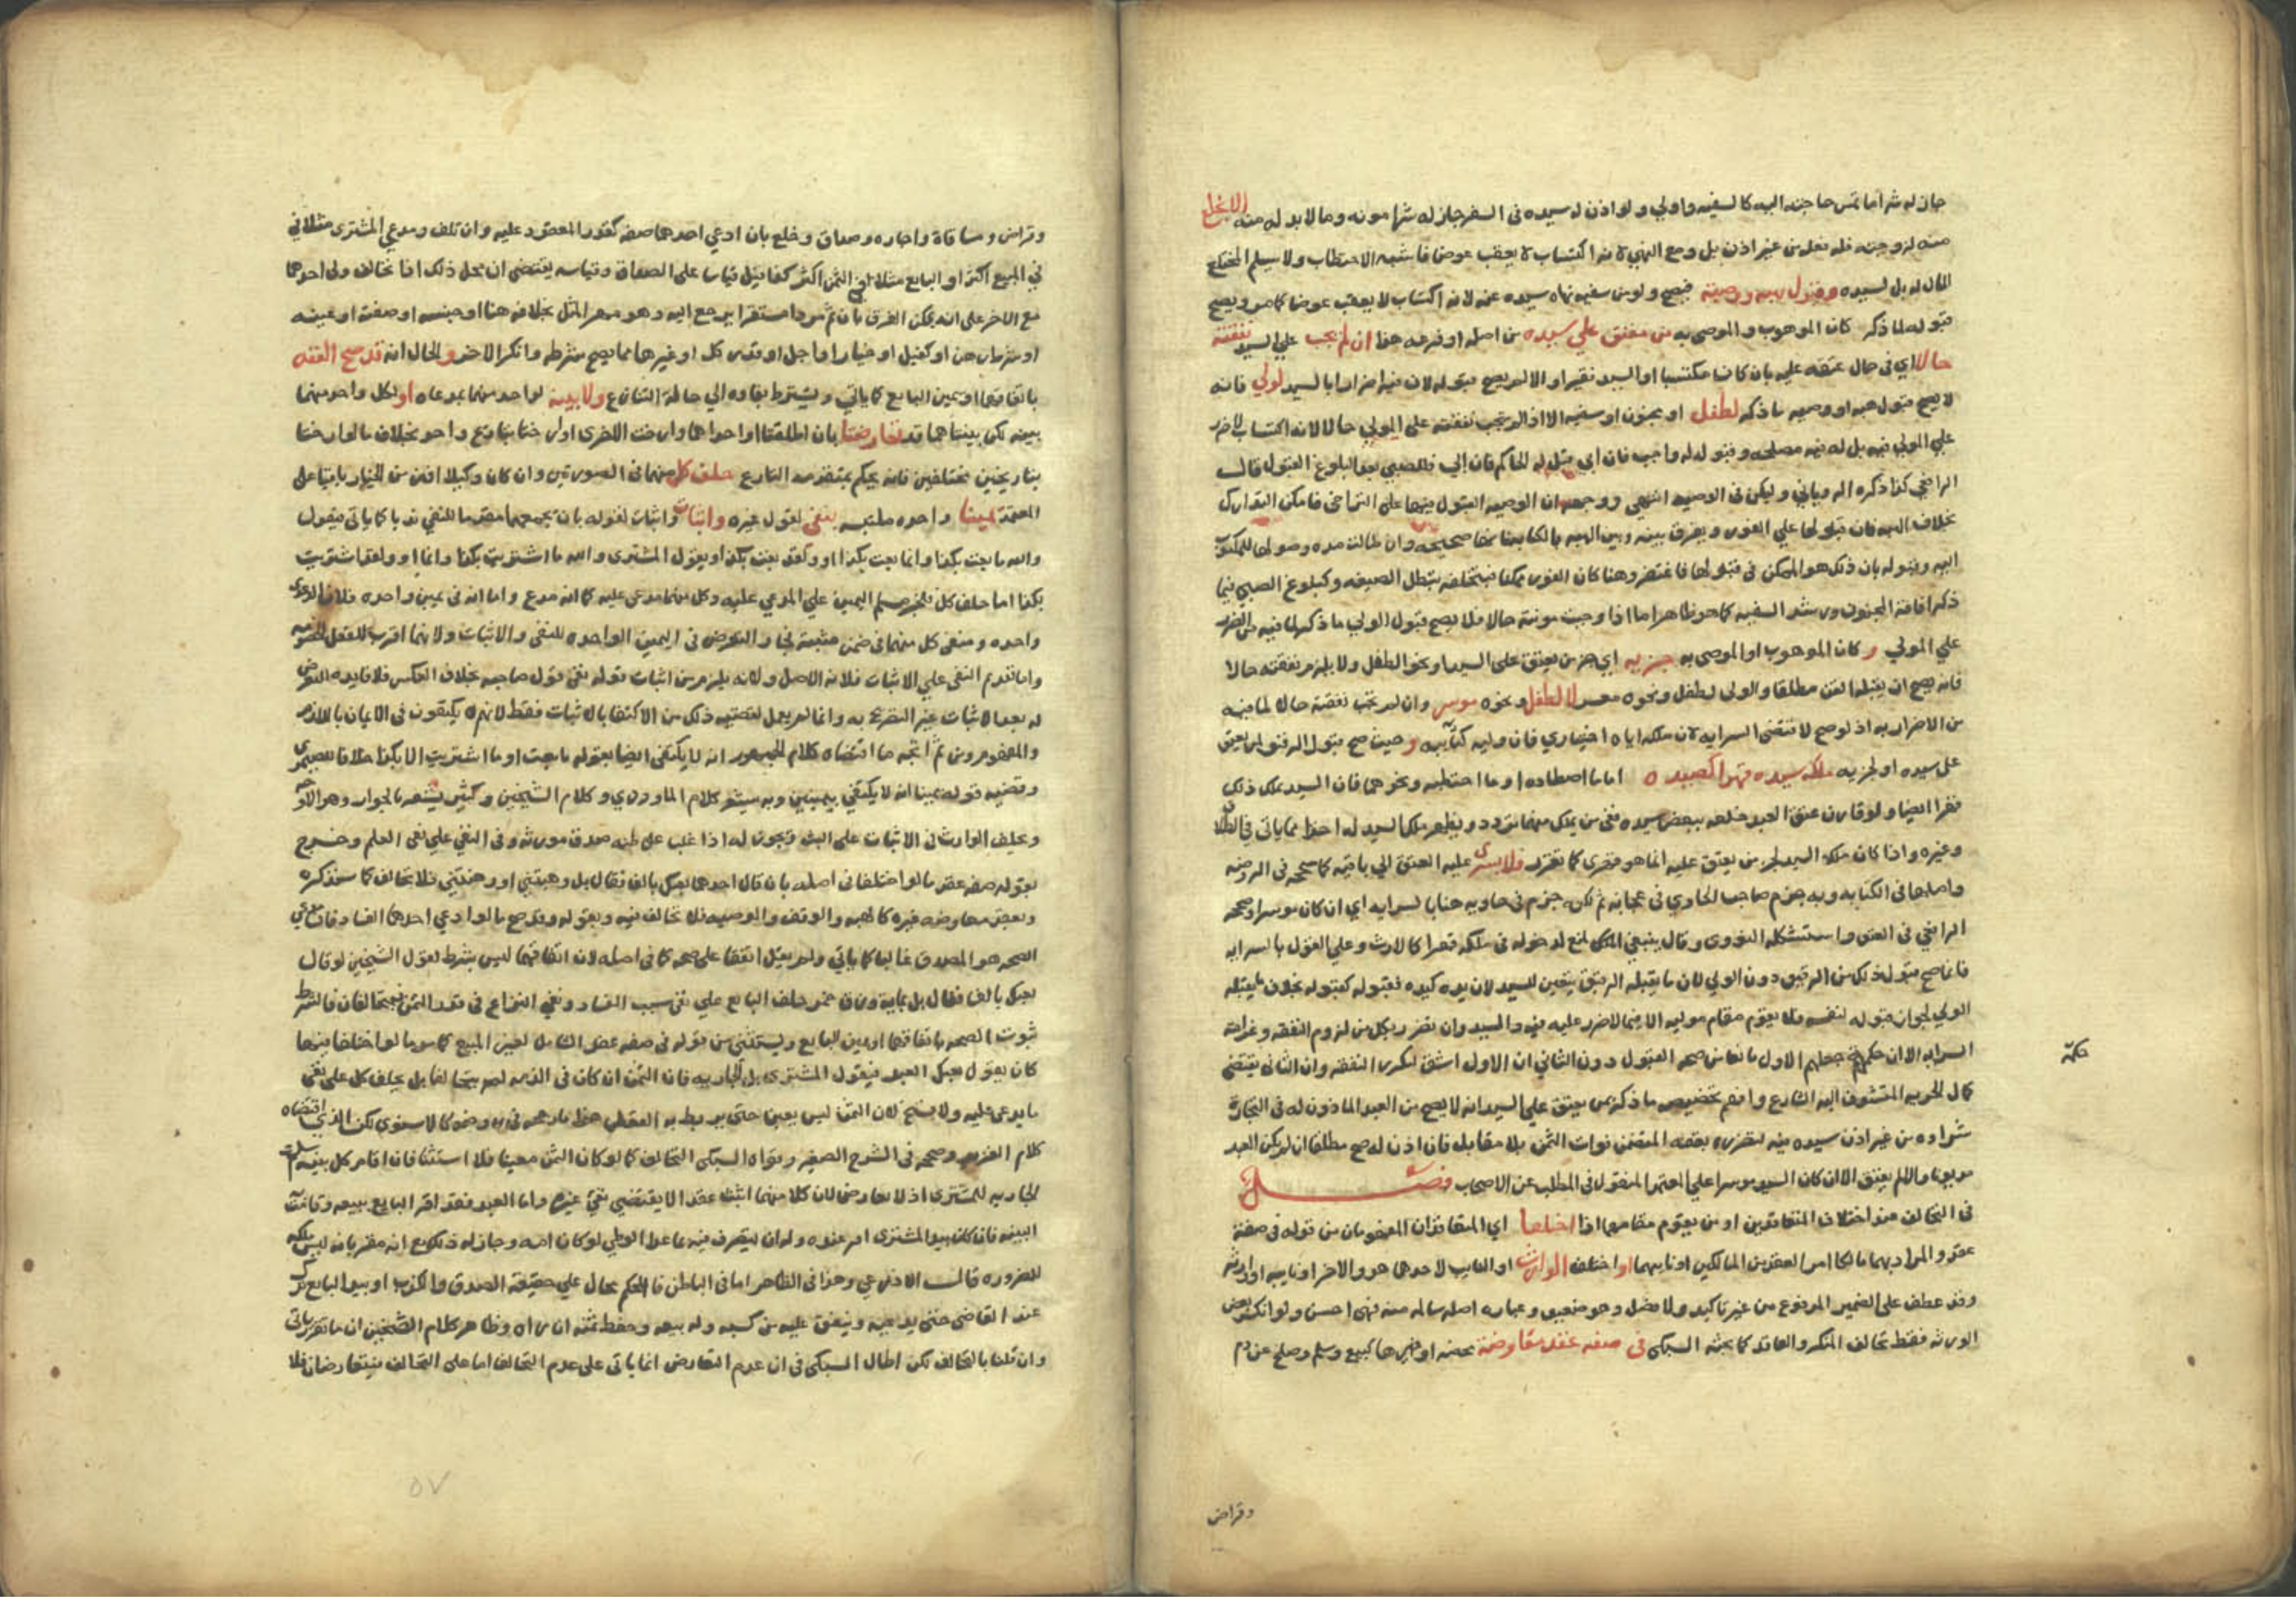 جاز له شرا ما تمس حاجته اليه كالسفيه واولي ولو اذن له سيده في السفر جاز له شرا مونه وما لا بد له منه الا بخلع
منه لزوجته فله فعل من غير اذن بل ومع النهي لانه اكتساب لا يعقب عوضا فاشبه الاحتطاب ولا يسلم المختلع
المال له بل لسيده وقبول هبه ووصية فيصح ولو من سفيه نهاه سيده عنه لانه اكتساب لا يعقب عوضا كما مر ويصح
قبوله لما ذكر كان الموهوب والموصى به من معتق علي سيده من اصله او فرعه هذا ان لم يجب علي السيد نفقته
حالا اي في حال عتقه عليه بان كان مكتسبا او السيد فقيرا والا لم يصح قبوله لان فيه اضرارا بالسيد لولي فانه
لا يصح قبول هبه او وصيه ما ذكر لطفل او مجنون او سفيه الا اذا لم يجب نفقته على المولي حالا لانه اكتساب لا ضرر
علي المولي فيه بل له فيه مصلحه وقبوله له واجب فان ابي قبل له الحاكم فان ابي فللصبي بعد البلوغ القبول قال
الرافعي كذا ذكره الروياني وليكن في الوصيه انتهي ووجهه ان الوصيه القبول فيها على التراخي فامكن التدارك
بخلاف الهبه فان قبولها علي الفور ويفرق بينه وبين الهبه بالكتابة صحيحه وان طالت مده وصولها للمكتوب
اليه وقبوله بان ذلك هو الممكن في قبولها فاغتفر وهنا كان الفور ممكنا فبتخلفه تبطل الصيغه وكبلوغ الصبي فيما
ذكر افاقة المجنون ورشد السفيه كما هو ظاهر اما اذا وجبت مونته حالا فلا يصح قبول الولي ما ذكر لما فيه من الضرر
علي المولي وكان الموهوب او الموصى به جزيه اي جز من يعتق على السيد او نحو الطفل ولا يلزم نفقته حالا
فانه يصح ان يقبله القن مطلقا والولى لطفل ونحوه معسر لا لطفل ونحوه موسر وان لم تجب نفقته حالا لما فيه
من الاضرار به اذ لو صح لاقتضى السرايه لان ملكه اياه اختياري فان وليه كنائبه وحيث صح قبول الرقيق لمن يعتق
على سيده او لجزيه ملكه سيده قهرا كصيده اما ما اصطاده او ما احتطبه ونحوهما فان السيد يملك ذلك
قهرا ايضا ولو قارن عتق العبد خلعه ببعض سيده ففي من يملك منهما تردد ويظهر ملك السيد له اخذا مما ياتي في الطلاق
وغيره واذا كان ملك السيد لجز من يعتق عليه انما هو قهري كما تقرر فلا يسرى عليه العتق الي باقيه كما صححه في الروضه
واصلها في الكتابه وبه جزم صاحب الحاوي في عجابه ثم لكن جزم في حاويه هنا بالسرايه اي ان كان موسرا وصححه
الرافعي في العتق واستشكله النووي وقال ينبغي المنع لدخوله في ملكه قهرا كالارث وعلي القول بالسرايه
فانما صح قبول ذلك من الرقيق دون الولي لان ما يقبله الرقيق يتعين للسيد لان يده كيده فقبوله كقبوله بخلاف ما يقبله
الولي لجواز قبوله لنفسه فلا يقوم مقام موليه الا فيما لا ضرر عليه فيه والسيد وان تضرر بكل من لزوم النفقه وغرامة
السرايه الا ان حكمة جعلهم الاول مانعا من صحه القبول دون الثاني ان الاول اشق لتكرر النفقه وان الثاني يقتضي
حكمة
كمال الحريه المتشوف اليه الشارع وافهم تخصيصه ما ذكر بمن يعتق علي السيد انه لا يصح من العبد الماذون له في التجارة
شراوه من غير اذن سيده فيه لتضرره بعتقه المتضمن فوات الثمن بلا مقابل فان اذن له صح مطلقا ان لم يكن العبد
مديونا والا لم يعتق الا ان كان السيد موسرا علي المعتمد المنقول في المطلب عن الاصحاب فصل
في التحالف عند اختلاف المتعاقدين او من يقوم مقامهما اذا اختلفا اي المتعاقدان المفهومان من قوله في صفة
عقد والمراد بهما مالكا امر العقد من المالكين او نايبهما او اختلف الوارث او النايب لاحدهما هو والاخر او نايبه او وارثه
وقد عطف على الضمير المرفوع من غير تاكيد ولا فصل وهو ضعيف وعباره اصله سالمه منه فهي احسن ولو انكر بعض
الورثه فقط تحالف المنكر والعاقد كما بحثه السبكي في صفه عقد معاوضة محضه او غيرها كبيع وسلم وصلح عن دم
وقراض
وقراض ومساقاة واجاره وصداق وخلع بان ادعي احدهما صفه كقدر المعقود عليه وان تلف ومدعي المشترى مثلا في
في المبيع اكثر او البايع مثلا في الثمن اكثر كفا قيل قياسا على الصداق وقياسه يقتضي ان محل ذلك اذا تخالف ولي احدهما
مع الاخر على انه يمكن الفرق بان ثم مردا مستقرا يرجع اليه وهو مهر المثل بخلافه هنا او جنسه او صفته او عينه
او شرط رهن او كفيل او خيار او اجل او قدر كل او غيرها مما يصح شرطه وانكر الاخر والحال انه قد صح العقد
باتفاقهما او يمين البايع كما ياتي ويشترط بقاوه الي حالة التنازع ولا بينه لواحد منهما بمدعاه او لكل واحد منهما
بينه لكن بينتاهما قد تعارضتا بان اطلقتا او احداهما وارخت الاخرى اولم ختا بتاريخ واحد بخلاف ما لو ارختا
بتاريخين مختلفين فانه يحكم بمتقدمه التاريخ حلف كل منهما في الصورتين وان كان وكيلا اذن من الخيار باقيا على
المعتمد يمينا واحده ملتبسه بنفي لقول غيره واثبات واثبات لقوله بان يجمعهما مقدما للنفي ندبا كما ياتي فيقول
والله ما بعت بكذا وانما بعت بكذا او ولقد بعت بكذا ويقول المشتري والله ما اشتريت بكذا وانما او ولقد اشتريت
بكذا اما حلف كل فلخبر مسلم اليمين علي المدعي عليه وكل منهما مدعى عليه كما انه مدع واما انه في يمين واحده فلان الدعوى
واحده ومنفي كل منهما في ضمن مثبته فجاز التعرض في اليمين الواحده للنفي والاثبات ولانها اقرب للفصل الخصومه
واما تقديم النفي علي الاثبات فلانه الاصل ولانه يلزم من اثبات قوله نفي قول صاحبه بخلاف العكس فلا فايده التعرض
له بعد الاثبات غير التصريح به وانما لم يعمل بقضيه ذلك من الاكتفا بالاثبات فقط لانهم لا يكتفون في الايمان باللازم
والمفهوم ومن ثم اتجه ما اقتضاه كلام الجمهور انه لا يكفي ايضا بقوله ما بعت او ما اشتريت الا بكذا خلافا للصيمري
وقضيه قوله يمينا انه لا يكتفي بيمينين وبه يشعر كلام الماوردي وكلام الشيخين وكثير يشعر بالجواز وهو الاوجه
ويحلف الوارث في الاثبات على البت ويجوز له اذا غلب على ظنه صدق مورثه وفي النفي علي نفي العلم وخرج
بقوله صفه عقد ما لو اختلفا في اصله بان قال احدهما بعتك بالف فقال بل وهبتني او رهنتني فلا تخالف كما سيذكره
وبعقد معاوضه غيره كالهبه والوقف والوصيه فلا تخالف فيه وبقوله وقد صح ما لو ادعي احدهما الفساد فان مدعي
الصحه هو المصدق غالبا كما ياتي ولم يقل اتفقا على صحه كما في اصله لان اتفاقهما ليس بشرط لقول الشيخين لو قال
بعتك بالف فقال بل بماية وزق خمر حلف البايع علي نفي سبب الفساد وبقي النزاع في قدر الثمن فيتحالفان فالشرط
ثبوت الصحه باتفاقهما او يمين البايع ويستثني من قوله في صفه عقد الشامل لعين المبيع كما مر ما لو اختلفا فيها
كان يقول بعتك العبد فيقول المشتري بل الجاريه فان الثمن ان كان في الذمه لم يتحالفا بل يحلف كل على نفي
ما يدعي عليه ولا فسخ لان الثمن ليس بعين حتي يرتبط به العقد هذا ما رجحه في روضه كالاسنوي لكن الذي اقتضاه
كلام العزيز وصححه في الشرح الصغير وقواه السبكي التحالف كما لو كان الثمن معينا فلا استثنا فان اقام كل بينه سلمت
الجاريه للمشتري اذ لا تعارض لان كلا منهما اثبت عقدا لا يقتضي نفي غيره واما العبد فقد اقر البايع ببيعه وقامت
البينه فان كان بيد المشتري اقر عنده وله ان يتصرف فيه بما عدا الوطي لو كان امه وجاز له ذلك مع انه مقر بانه ليس ملكه
للضروره قال الاذرعي وهذا في الظاهر اما في الباطن فالحكم محال علي حقيقه الصدق والكذب او بيد البايع ترك
عند القاضي حتى يدعيه وينفق عليه من كسبه وله بيعه وحفظ ثمنه ان راه وظاهر كلام الشيخين ان ما تقرر ياتي
وان قلنا بالتحالف لكن اطال السبكي في ان عدم التعارض انما ياتي على عدم التحالف اما على التحالف فيتعارضان فلا
٥٧